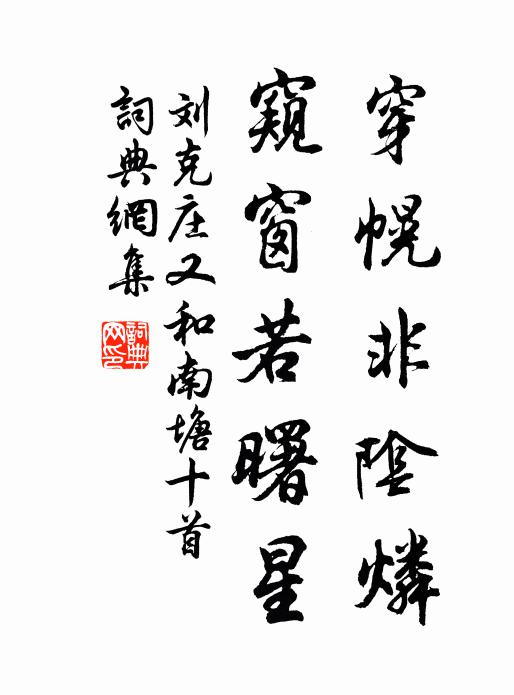 穿幌非陰燐
窺窗若曙星
刘克庄又和南塘十首
詞典網集
詞典网印